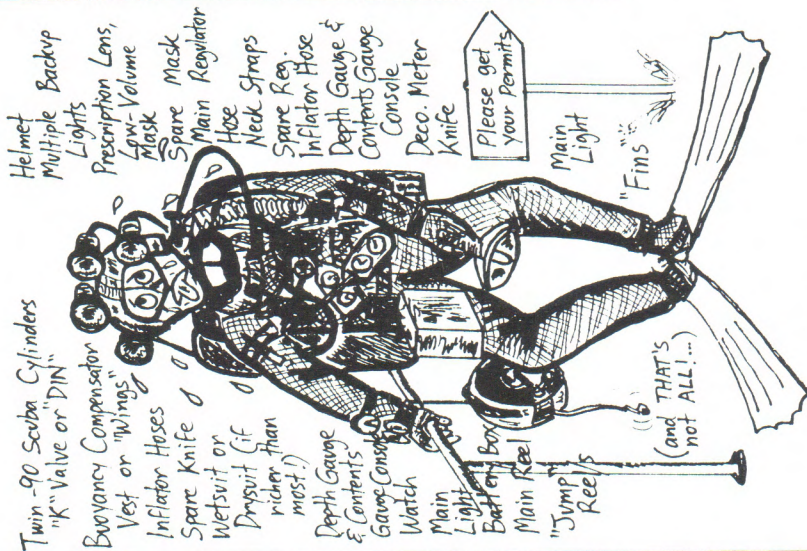 Twin-90 Scuba Cylinders
"K" Valve or "DIN"
Buoyancy Compensator
Vest or "Wings"
Inflator Hoses
Spare Knife
Wetsuit or
Drysuit (if
richer than
most!)
Depth Gauge
& Contents
Gauge Console
Watch
Main
Light
Battery Box
Main Reel
"Jump"
Reels
(and THAT'S
not ALL!...)
Helmet
Multiple Backup
Lights
Prescription Lens,
Low-Volume
Mask
Spare Mask
Main Regulator
Hose
Neck Straps
Spare Reg.
Inflator Hose
Depth Gauge &
Contents Gauge
Console
Deco. Meter
Knife
Please get
your Permits
Main
Light
"Fins"